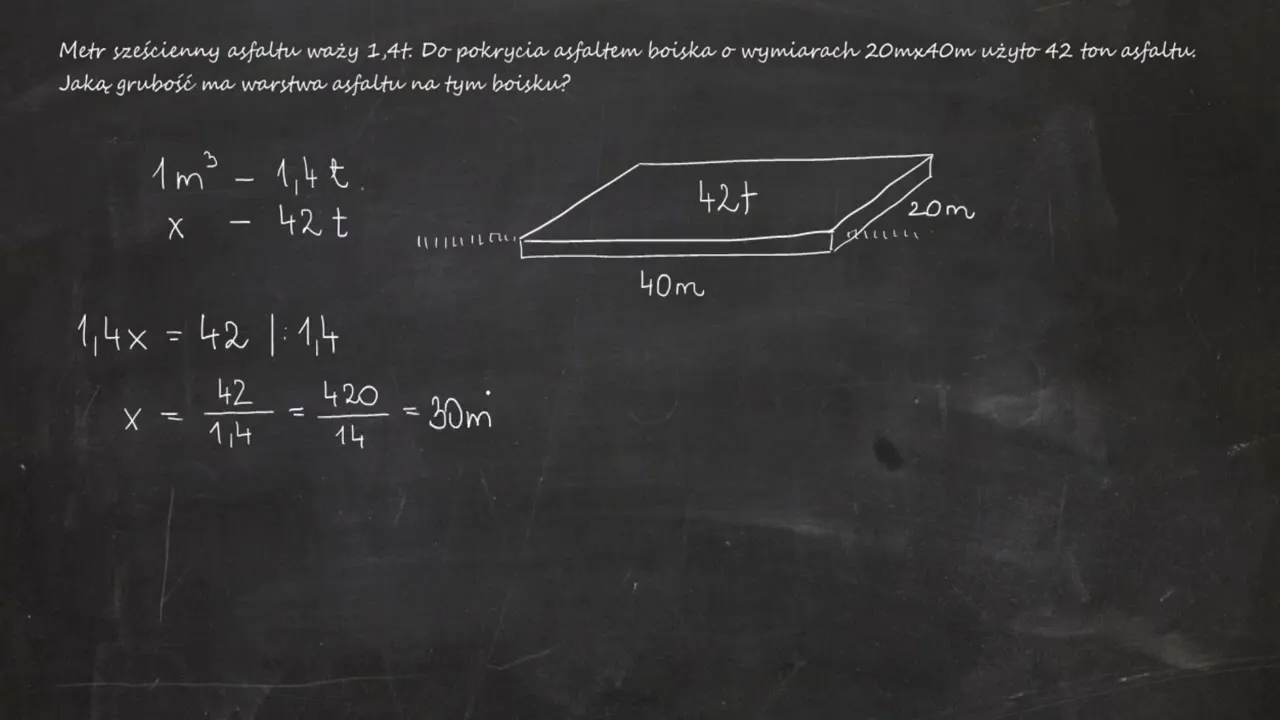 Metr sześcienny asfaltu waży 1,4t. Do pokrycia asfaltem boiska o wymiarach 20mx40m użyto 42 ton asfaltu.
Jaką grubość ma warstwa asfaltu na tym boisku?
1m³ - 1,4 t
x - 42 t
42t
20m
40m
1,4x = 42 |: 1,4
x = 42/1,4 = 420/14 = 30m